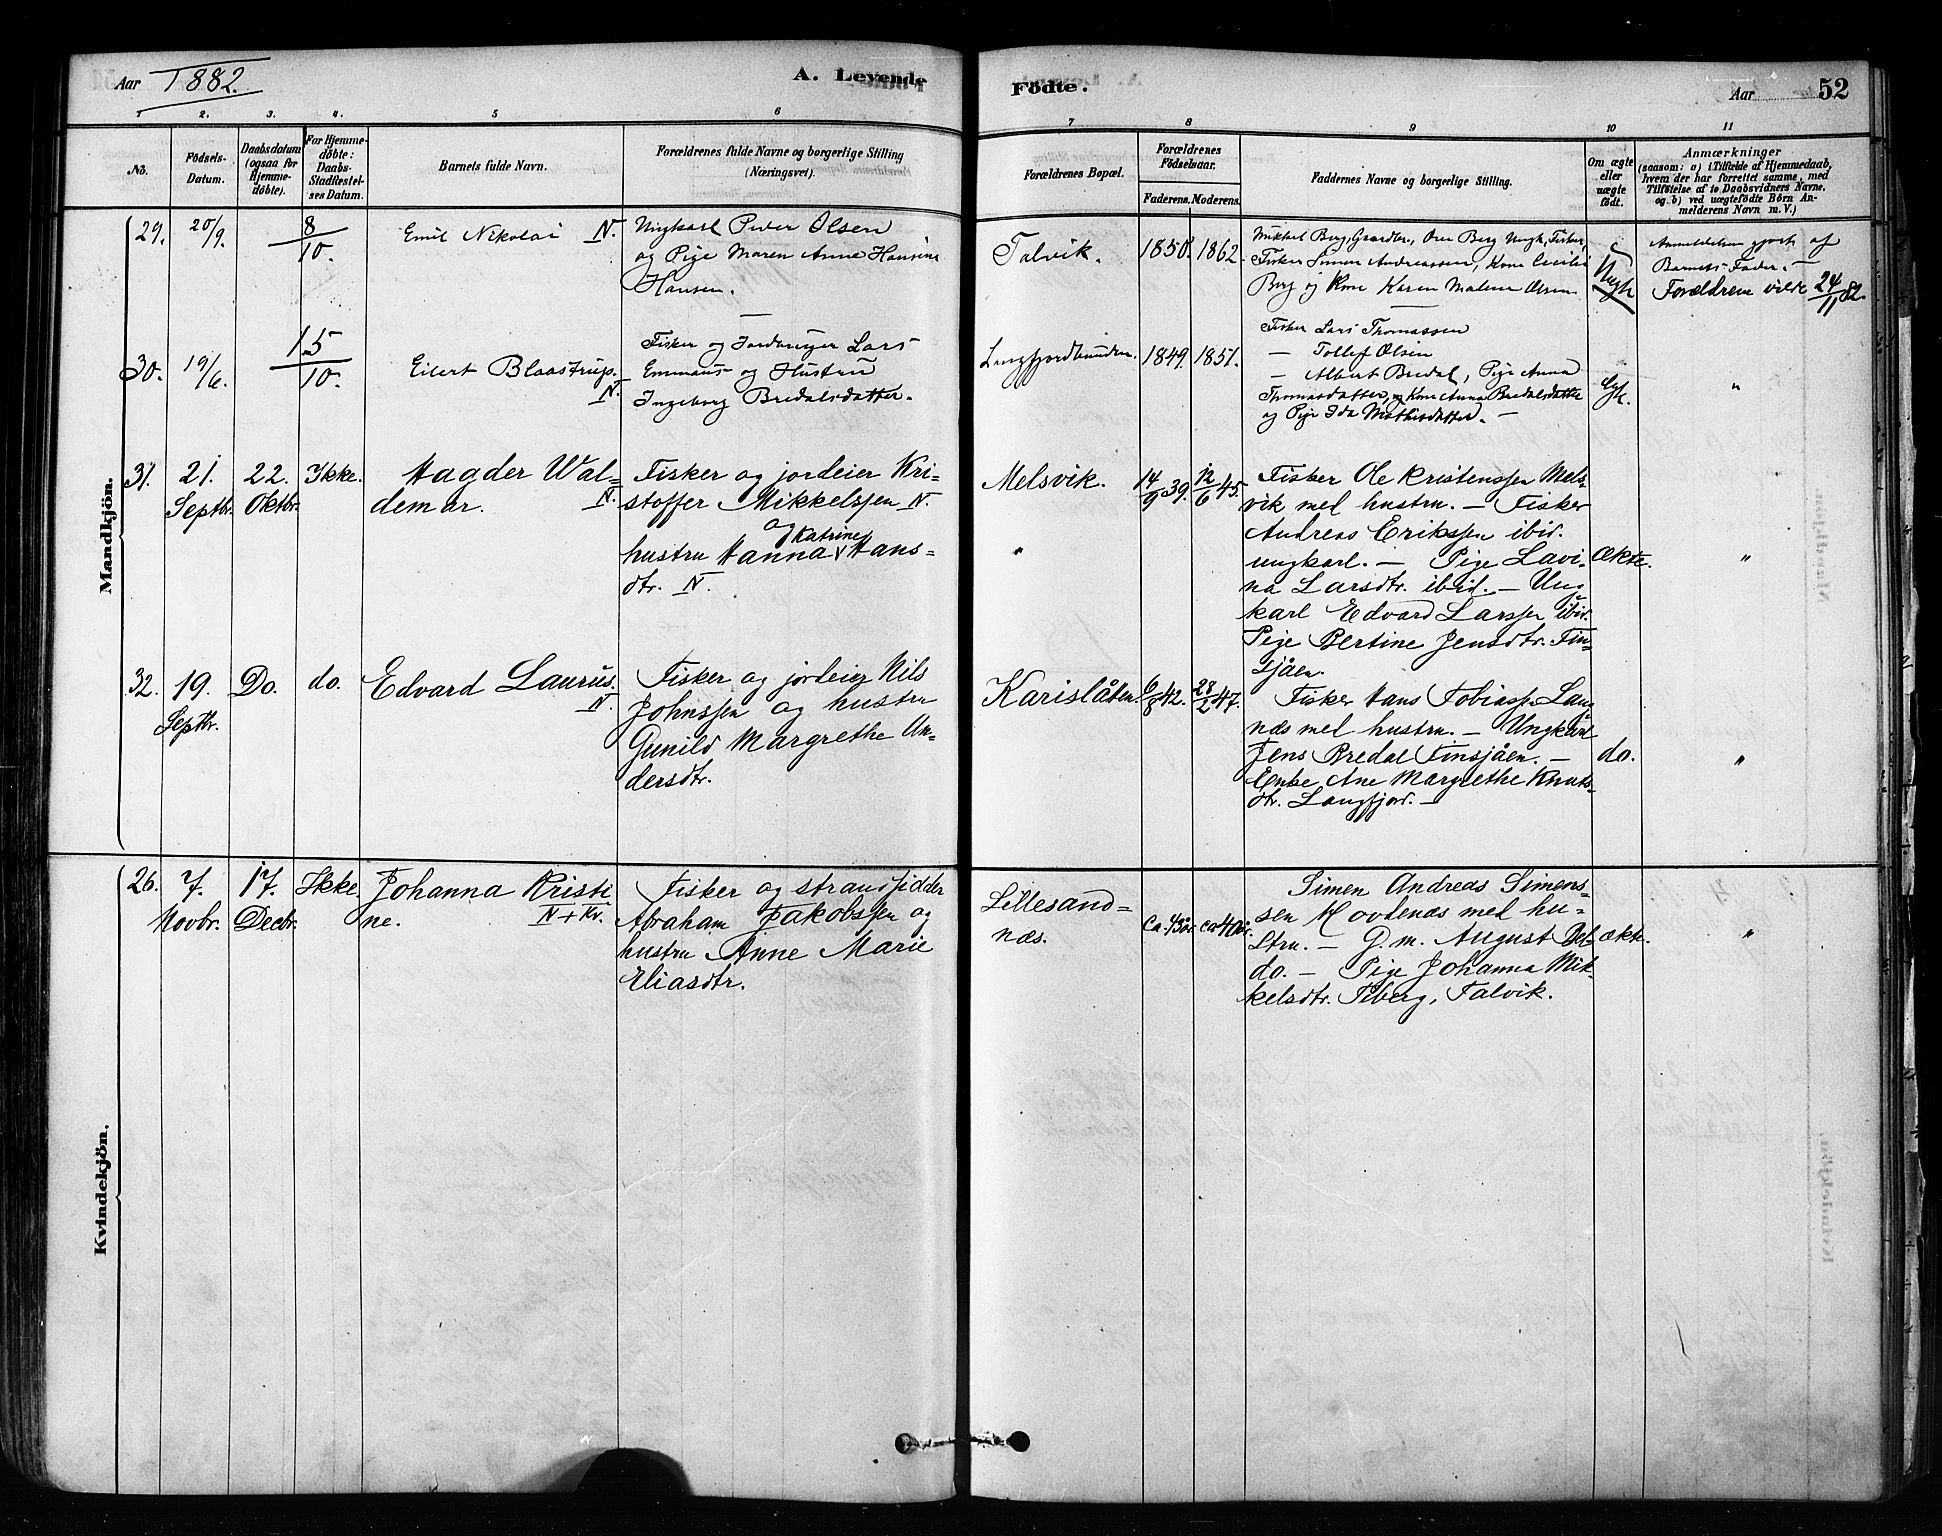 Aar 1882.
A. Levende
Födte.
Aar
52
1 2. 3. 4. 5 6
7 8 9 10 11
No.
Födsels-
Datum.
Daabsdatum
(ogsaa for
Hjemme-
döbte).
For Hjemme-
döbte:
Daabs-
Stadfæstel-
ses Datum.
Barnets fulde Navn.
Forældrenes fulde Navne og borgerlige Stilling
(Næringsvei).
Forældrenes Bopæl.
Forældrenes
Födselsaar.
Faderens. Moderens.
Faddernes Navne og borgerlige Stilling.
Om ægte
eller
uægte
födt.
Anmærkninger
(saasom: a) i Tilfælde af Hjemmedaab,
hvem der har forrettet samme, med
Tilföielse af to Daabsvidners Navne,
og b) ved uægtefödte Börn An-
melderens Navn m. V.)
Mandkjön.
29.
20/9.
8/10.
Emil Nikolai N.
Ungkarl Peder Olsen
og Pige Maren Anne Hansine
Hansen.
Talvik.
1850. 1862.
Mikkel Berg, Gaardbr., Ole Berg Ungk., Fisker,
Fisker Simon Andreassen, Kone Cecilie
Berg og Kone Karen Malene Olsen
Uægte
Anmeldelsen gjort af
Barnets Fader. —
Forældrene viede 24/11 82.
30.
19/6.
15/10.
Eilert Blaastrup.
N.
Fisker og Jordbruger Lars
Emmaus og Hustru
Ingeborg Bredalsdatter.
Langfjordbunden.
1849. 1857.
Fisker Lars Thomassen
— Tollef Olsen
— Albert Bredal, Pige Anna
Thomasdatter, og Kone Anna Bredalsdatter
og Pige Ida Mathisdatter. —
Egt.
"
31.
21.
Septbr.
22.
Oktbr.
Ikke.
Hagder Wal=
demar. N.
Fisker og jordeier Kri-
stoffer Mikkelssen N.
og
hustru Hanna Katrine Hans=
dtr. N.
Melsvik.
"
14/9 39. 12/6 45.
Fisker Ole Kristenssen Mels-
vik med hustru. — Fisker
Andreas Erikssen ibid.
ungkarl. — Pige Lavi-
na Larsdtr. ibid. — Ung
karl Edvard Larssen ibid.
Pige Bertine Jensdtr. Fin-
sjåen.
Ækte.
"
32.
19.
Septbr.
Do.
do.
Edvard Laurus.
N.
Fisker og jordeier Nils
Johnssen og hustru
Gunild Margrethe An-
dersdtr.
Karislåten.
6/8 42. 28/2 47.
Fisker Hans Tobiassen Lang
næs med hustru. — Ungkarl
Jens Bredal Finsjåen. —
Enke Ane Margrethe Knuts-
dtr. Langfjord. —
do.
"
Kvindekjön.
26.
7.
Novbr.
17.
Decbr.
Ikke.
Johanna Kristi
ne. N + Kv.
Fisker og strandsidder
Abraham Jakobssen og
hustru Anne Marie
Eliasdtr.
Lillesand=
næs.
ca. 43 år. ca. 40 år.
Simen Andreas Simens-
sen Hovdenæs med hu-
stru. — G. m. August Bel-
do. — Pige Johanna Mik-
kelsdtr. Fiberg, Talvik.
ækte.
"